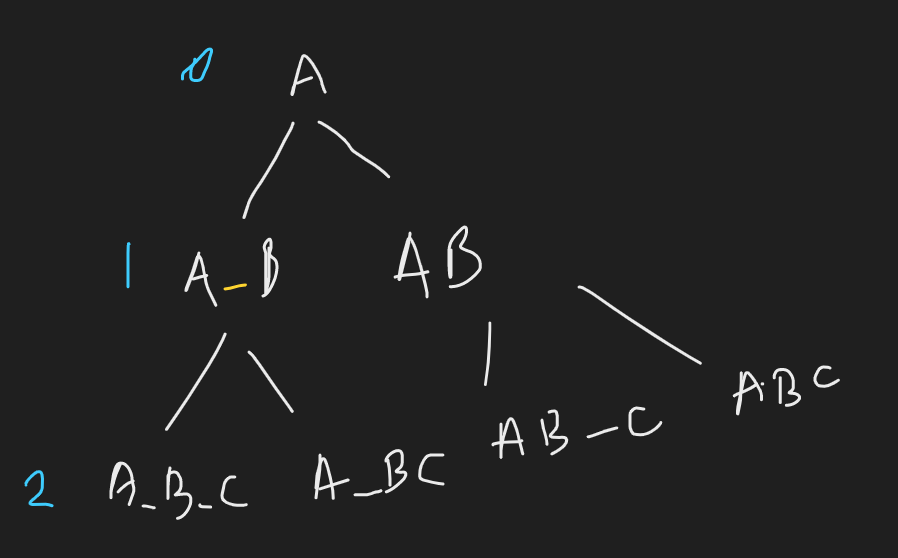 0 A
1 A_B AB
2 A_B_C A_BC AB_C ABC